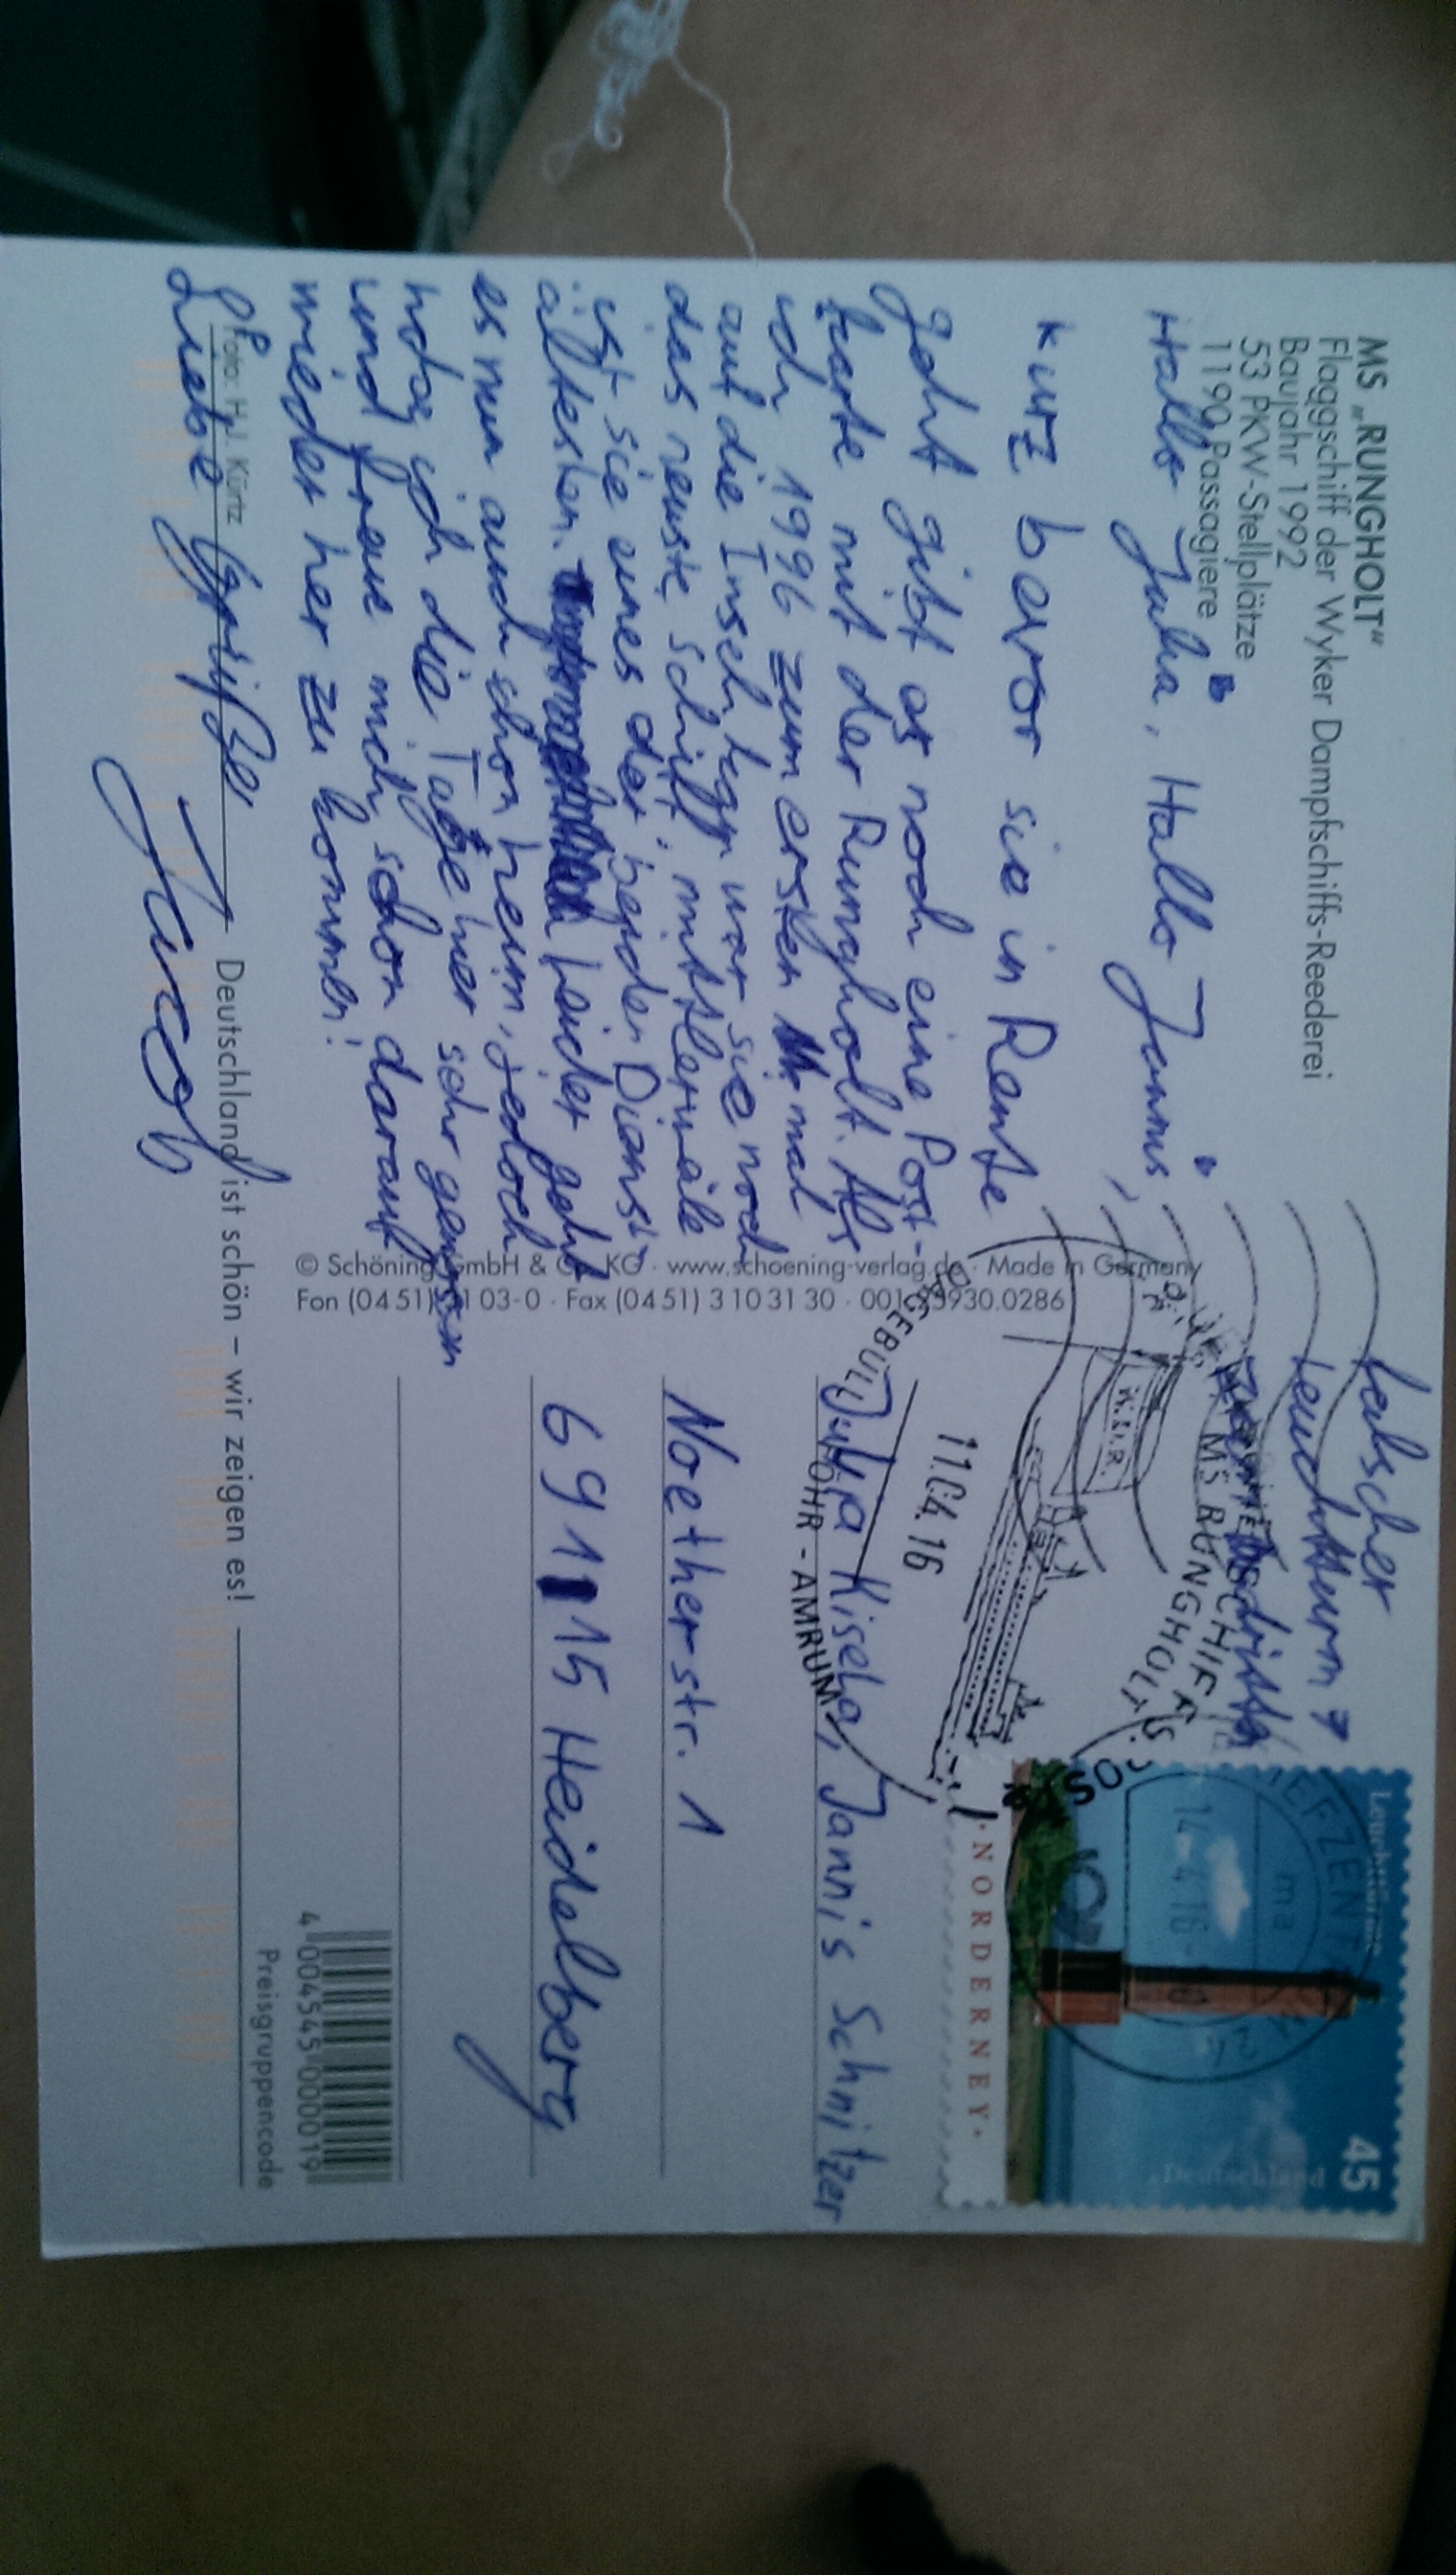 MS „RUNGHOLT“
Flaggschiff der Wyker Dampfschiffs-Reederei
Baujahr 1992
53 PKW-Stellplätze
1190 Passagiere
Hallo Julia, Hallo Jannis,
kurz bevor sie in Rente
geht gibt es noch eine Post-
karte mit der Rungholt. Als
ich 1996 zum ersten mal
auf die Insel kam war sie noch
das neuste Schiff, mittlerweile
ist sie eines der beiden Dienst-
ältesten. Leider geht
es nun auch schon heim, jedoch
hab ich die Tage hier sehr genossen
und freue mich schon darauf
wieder her zu kommen!
Liebe Grüße
Jacob
Foto: H.J. Kürtz
Deutschland ist schön – wir zeigen es!
© Schöning GmbH & Co. KG · www.schoening-verlag.de · Made in Germany
Fon (04 51) 3 1 03-0 · Fax (04 51) 3 10 31 30 · 001 93930.0286
Falscher
Leuchtturm
MS RUNGHOLT
W.D.R.
11.04.16
DAGEBÜLL
FÖHR - AMRUM
Leuchttürme
45
Deutschland
NORDERNEY
BRIEFZENTRUM
14.-4.16
ma
24
Julia Kiseha, Jannis Schnitzer
Noetherstr. 1
69115 Heidelberg
4 004545 000019
Preisgruppencode